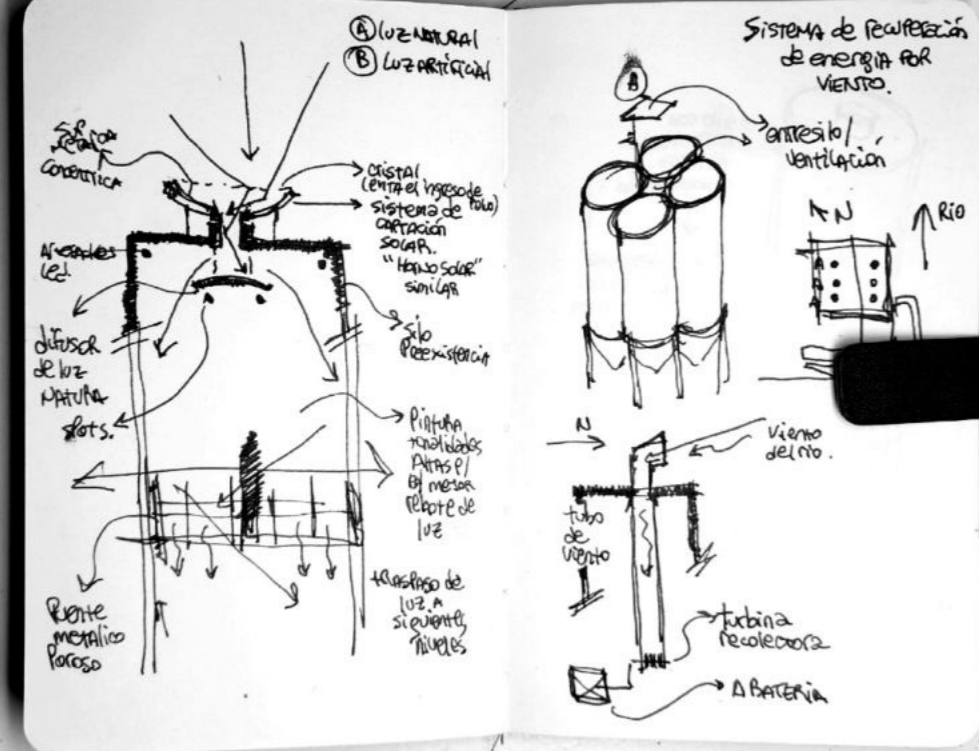 Ⓐ LUZ NATURAL
Ⓑ LUZ ARTIFICIAL
SUP.
METALICA
CONCENTRICA
CRISTAL
(EVITA el ingreso de POLVO)
SISTEMA de
CAPTACIÓN
SOLAR.
"HORNO SOLAR"
SIMILAR
Led.
difusor
de luz
NATURA
SPOTS.
Silo
Preexistencia
PINTURA
tonalidades
ALTAS P/
mejor
rebote de
luz
Puente
metalico
Poroso
traspaso de
luz A
siguientes
niveles
SISTEMA de recuperación
de energia POR
VIENTO.
B
entresilo/
ventilación
N
RIO
N
Viento
del rio.
tubo
de
viento
turbina
recolectora
A BATERIA